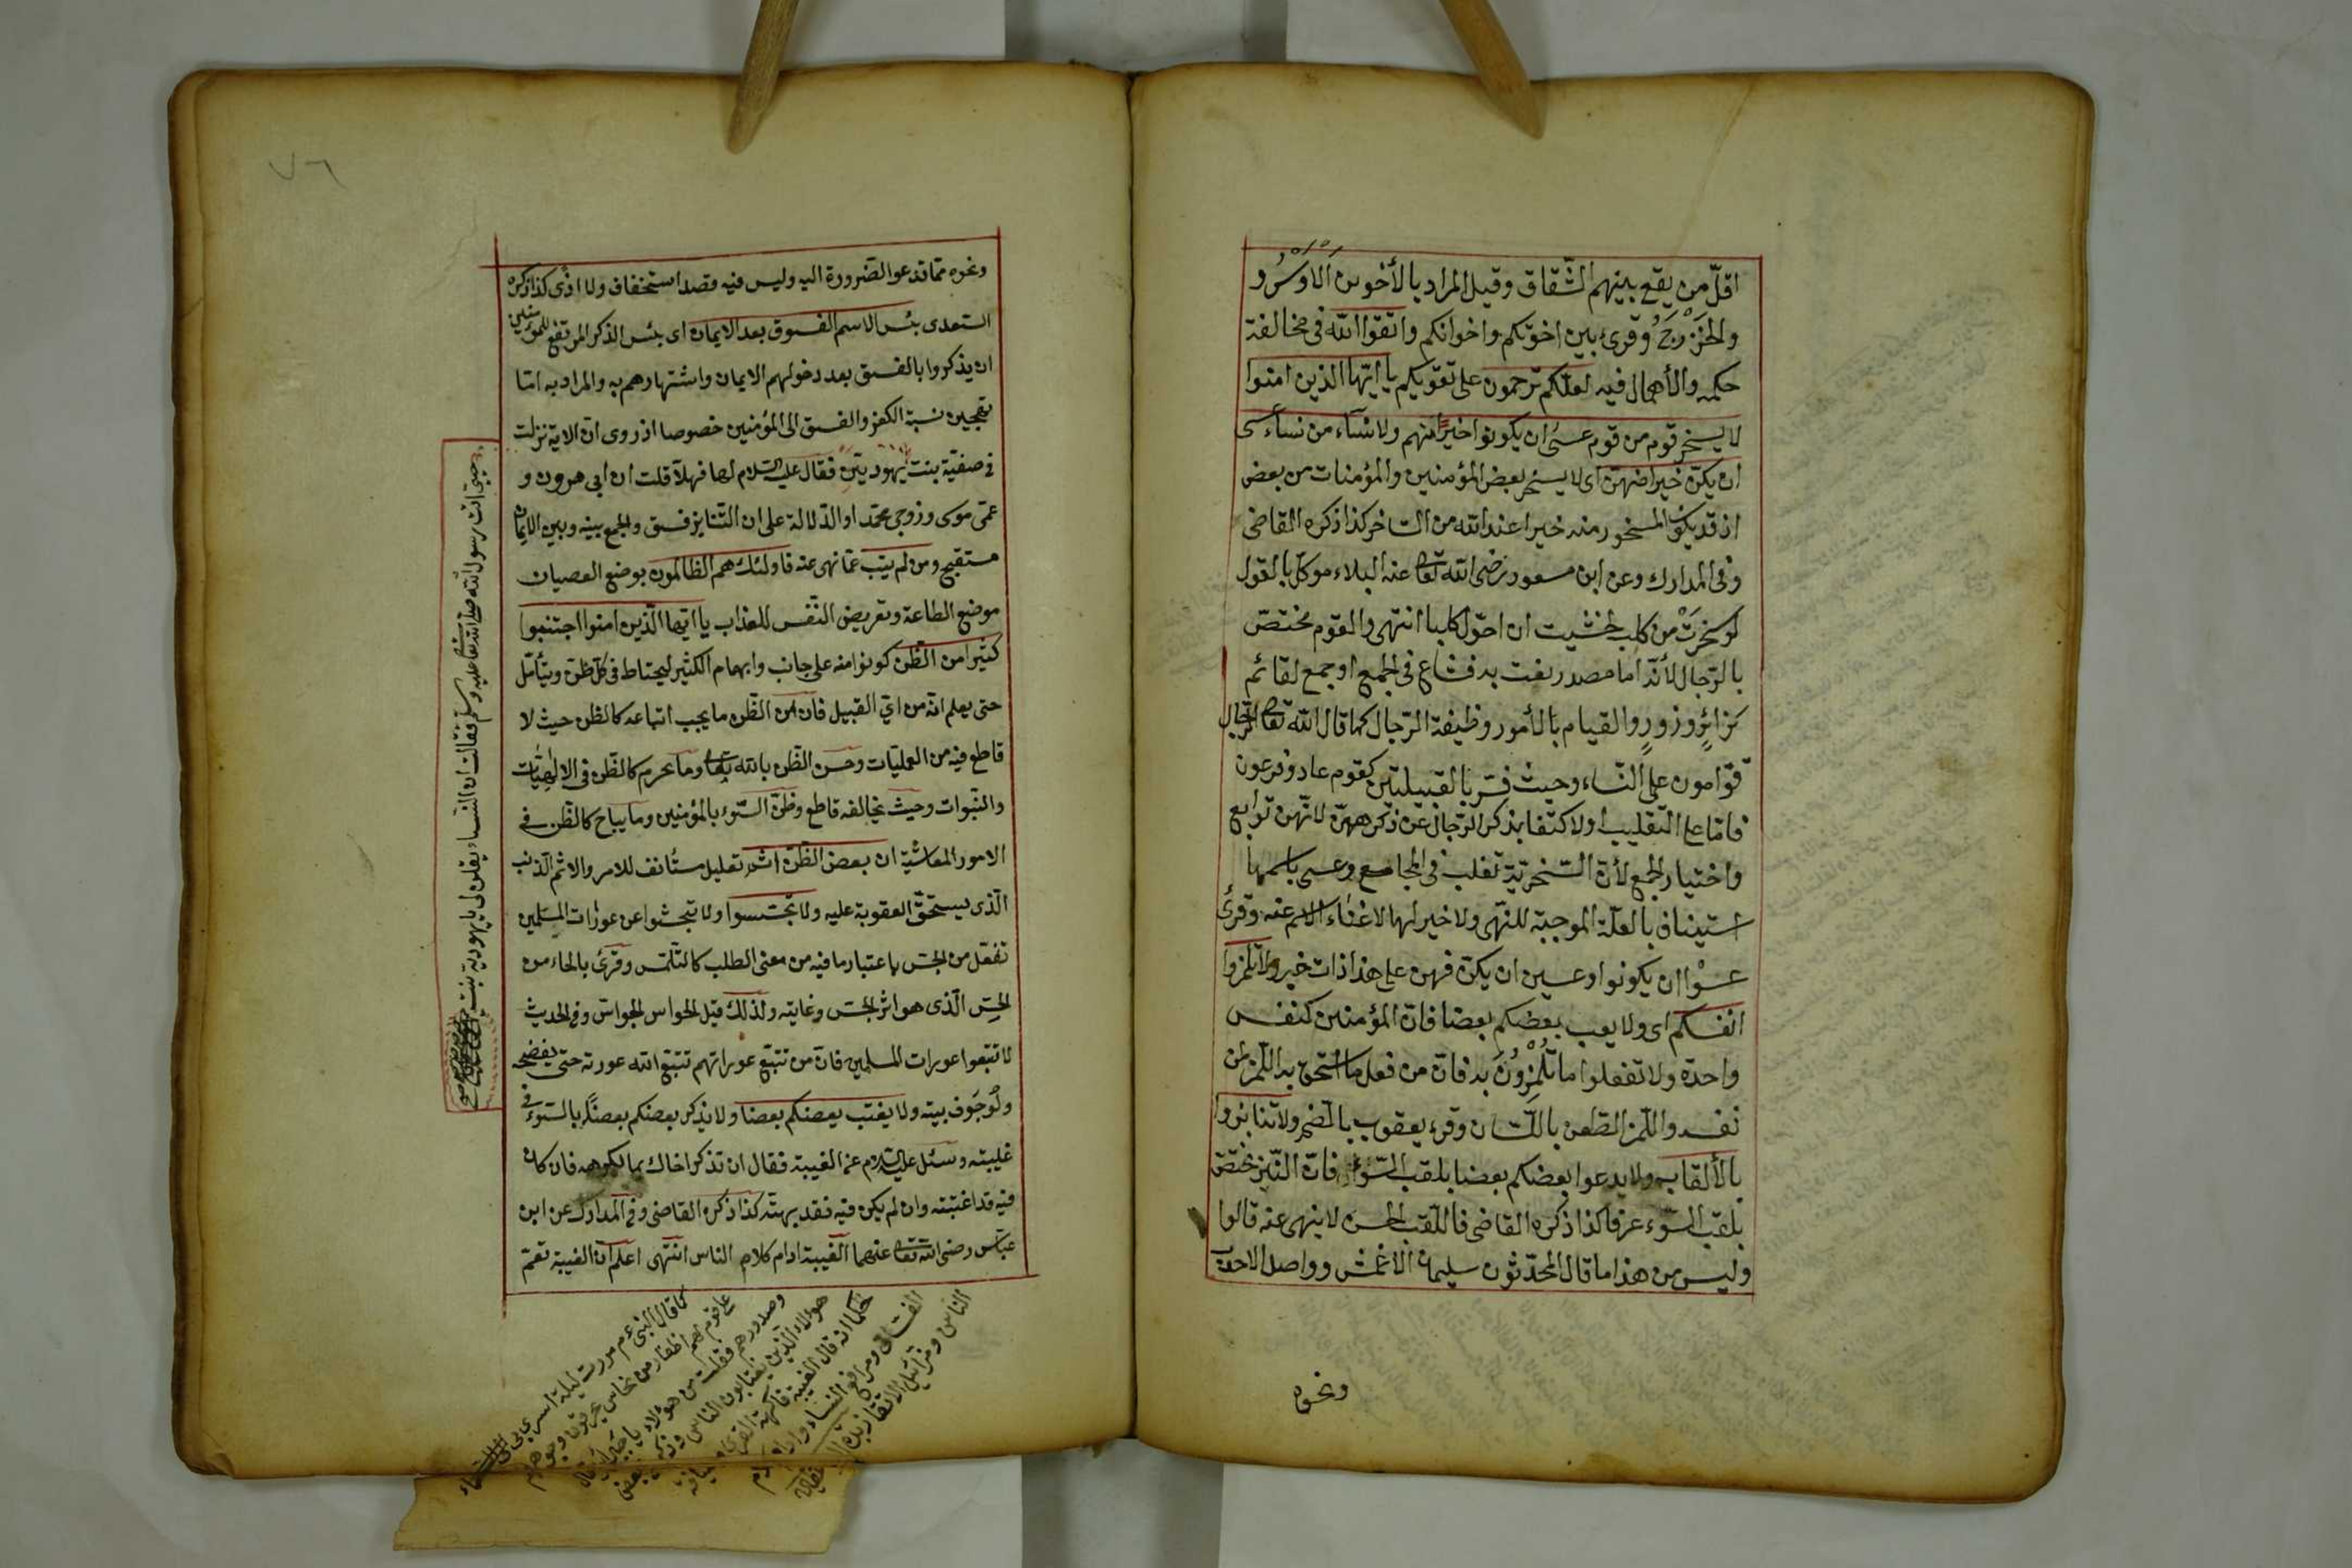 اقلّ من يقع بينهم الشّقاق وقيل المراد بالأخوين الاوس و
والخزرج وقرئ بين اخوتكم واخوانكم واتقوا الله فى مخالفة
حكمه والأهمال فيه لعلّكم ترحمون على تقويكم يا ايّها الذين امنوا
لا يسخر قوم من قوم عسى ان يكونوا خيرا منهم ولا نساء من نساء عسى
ان يكنّ خيرا منهنّ اى لا يسخر بعض المؤمنين والمؤمنات من بعض
اذ قد يكون المسخور منه خيرا عند الله من الساخر كذا ذكره القاضى
وفى المدارك وعن ابن مسعود رضى الله تعالى عنه البلاء موكل بالقول
لو سخرت من كلب لخشيت ان احوّل كلبا انتهى والقوم مختصّ
بالرّجال لأنّه اما مصدر نعت به فشاع فى الجمع او جمع لقائم
كزائر وزور والقيام بالأمور وظيفة الرّجال كما قال الله تعالى الرّجال
قوّامون على النّساء وحيث فسّر بالقبيلتين كقوم عاد وفرعون
فامّا على التّغليب او لاكتفا بذكر الرّجال عن ذكرهنّ لانّهنّ توابع
واختيار الجمع لأنّ السّخريّة تغلب فى المجامع وعسى باسمها
استيناف بالعلّة الموجبة للنّهى ولا خير لها لاغناء الاسم عنه وقرئ
عسوا ان يكونوا وعسين ان يكنّ فهن على هذا ذات خبر ولا تلمزوا
انفسكم اى ولا يعب بعضكم بعضا فانّ المؤمنين كنفس
واحدة ولا تفعلوا ما تلمزون به فانّ من فعل ما استحق به اللّمز لمن
نفسه واللّمز الطّعن باللّسان وقرء يعقوب بالضم ولا تنابزوا
بالألقاب ولا يدعوا بعضكم بعضا بلقب السّوء فانّ النّبز مختصّ
بلقب السّوء عرفا كذا ذكره القاضى فاللّقب الحسن لا ينهى عنه قالوا
وليس من هذا ما قال المحدّثون سليمان الاعمش وواصل الاحدب
ونحوه
٧٦
ونحوه ممّا تدعوا الضّرورة اليه وليس فيه قصد استخفاف ولا اذى كذا ذكره
السّعدى بئس الاسم الفسوق بعد الايمان اى بئس الذكر المرتفع للمؤمنين
ان يذكروا بالفسق بعد دخولهم الايمان واشتهارهم به والمراد به امّا
تهجين نسبة الكفر والفسق الى المؤمنين خصوصا اذ روى انّ الاية نزلت
فى صفيّة بنت يهوديّين فقال عليه السّلام لها فهلاّ قلت ان ابى هرون و
عمّى موسى وزوجى محمّد او الدّلالة على ان التّنابز فسق والجمع بينه وبين الايمان
مستقبح ومن لم يتب عمّا نهى عنه فاولئك هم الظالمون بوضع العصيان
موضع الطاعة وتعريض النّفس للعذاب يا ايّها الّذين امنوا اجتنبوا
كثيرا من الظّن كونوا منه على جانب وابهام الكثير ليحتاط فى كلّ ظنّ ويتأمّل
حتى يعلم انّه من اىّ القبيل فان من الظّن ما يجب اتباعه كالظن حيث لا
قاطع فيه من العمليّات وحسن الظّن بالله تعالى وما يحرم كالظّن فى الالهيّات
والنّبوات وحيث يخالفه قاطع وظنّ السّوء بالمؤمنين وما يباح كالظّن فى
الامور المعاشيّة ان بعض الظّنّ اثم تعليل مستأنف للامر والاثم الذنب
الّذى يستحقّ العقوبة عليه ولا تجسّسوا ولا تبحثوا عن عورات المسلمين
تفعّل من الجسّ باعتبار ما فيه من معنى الطلب كالتلمّس وقرئ بالحاء من
الحسّ الّذى هو اثر الجسّ وغايته ولذلك قيل الحواس الجواسّ وفى الحديث
لا تتبعوا عورات المسلمين فانّ من تتبع عوراتهم تتبّع الله عورته حتّى يفضحه
ولو جوف بيته ولا يغتب بعضكم بعضا ولا يذكر بعضكم بعضا بالسّوء فى
غيبته وسئل عليه السّلام عن الغيبة فقال ان تذكر اخاك بما يكرهه فان كان
فيه قد اغتبته وان لم يكن فيه فقد بهتّه كذا ذكره القاضى وفى المدارك عن ابن
عبّاس رضى الله تعالى عنهما الغيبة ادام كلاب الناس انتهى اعلم انّ الغيبة تعمّ
حيى انت رسول الله صلى الله تعالى عليه وسلم فقالت ان النساء يقلن لى يا يهودية بنت
كما قال النبى عم مررت ليلة اسرى بى
على قوم لهم اظفار من نحاس وجوههم
وصدورهم فقلت من هؤلاء يا جبرائيل قال
هؤلاء الّذين يغتابون الناس
انه قال الغيبة فاكهة القرّاء
الفسّاق ومراتع النساء وادام
الناس